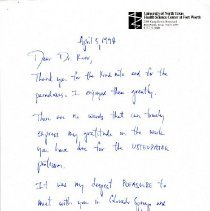 University of North Texas
Health Science Center at Fort Worth
April 5, 1994
Dear Dr.
Thank you for the kind note and for the
. I enjoyed them greatly.
There are no words that can
express my gratitude in the work
you have done for the OSTEOPATHIC
profession.
It was my deepest PLEASURE to
meet with you in Colorado Springs and